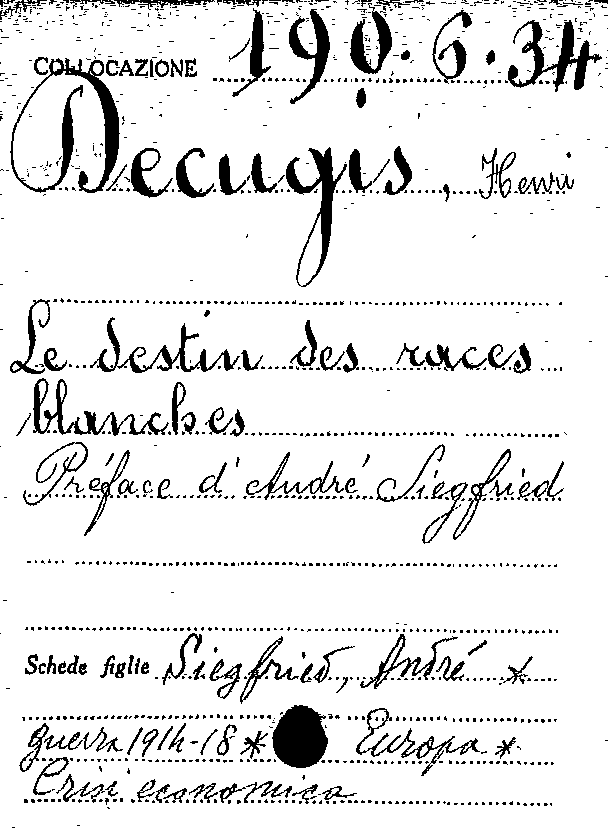 COLLOCAZIONE 190.6.34
Decugis, Henri
Le destin des races
blanches
Préface d'André Siegfried
Schede figlie Siegfried, André *
guerra 1914-18 * Europa *
Crisi economica